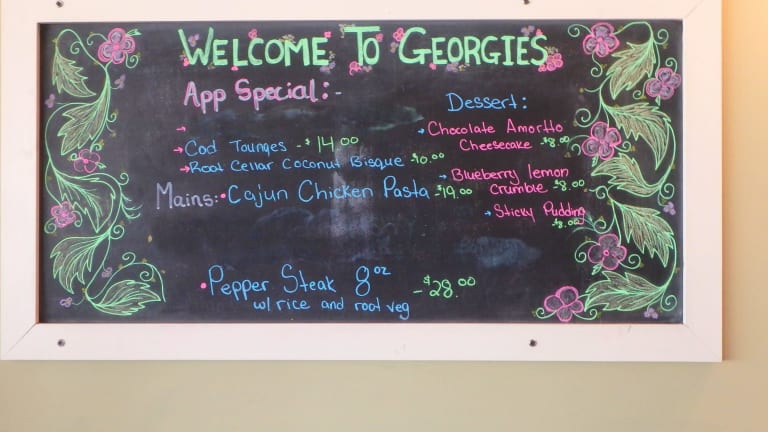 WELCOME TO GEORGIES
App Special:-
→
→ Cod Tounges - $14.00
→ Root Cellar Coconut Bisque $10.00
Mains: • Cajun Chicken Pasta - $19.00
• Pepper Steak 8oz
w/ rice and root veg
- $28.00
Dessert:
→ Chocolate Amortto
Cheesecake - $8.00
→ Blueberry lemon
Crumble - $8.00
→ Sticky Pudding
- $8.00